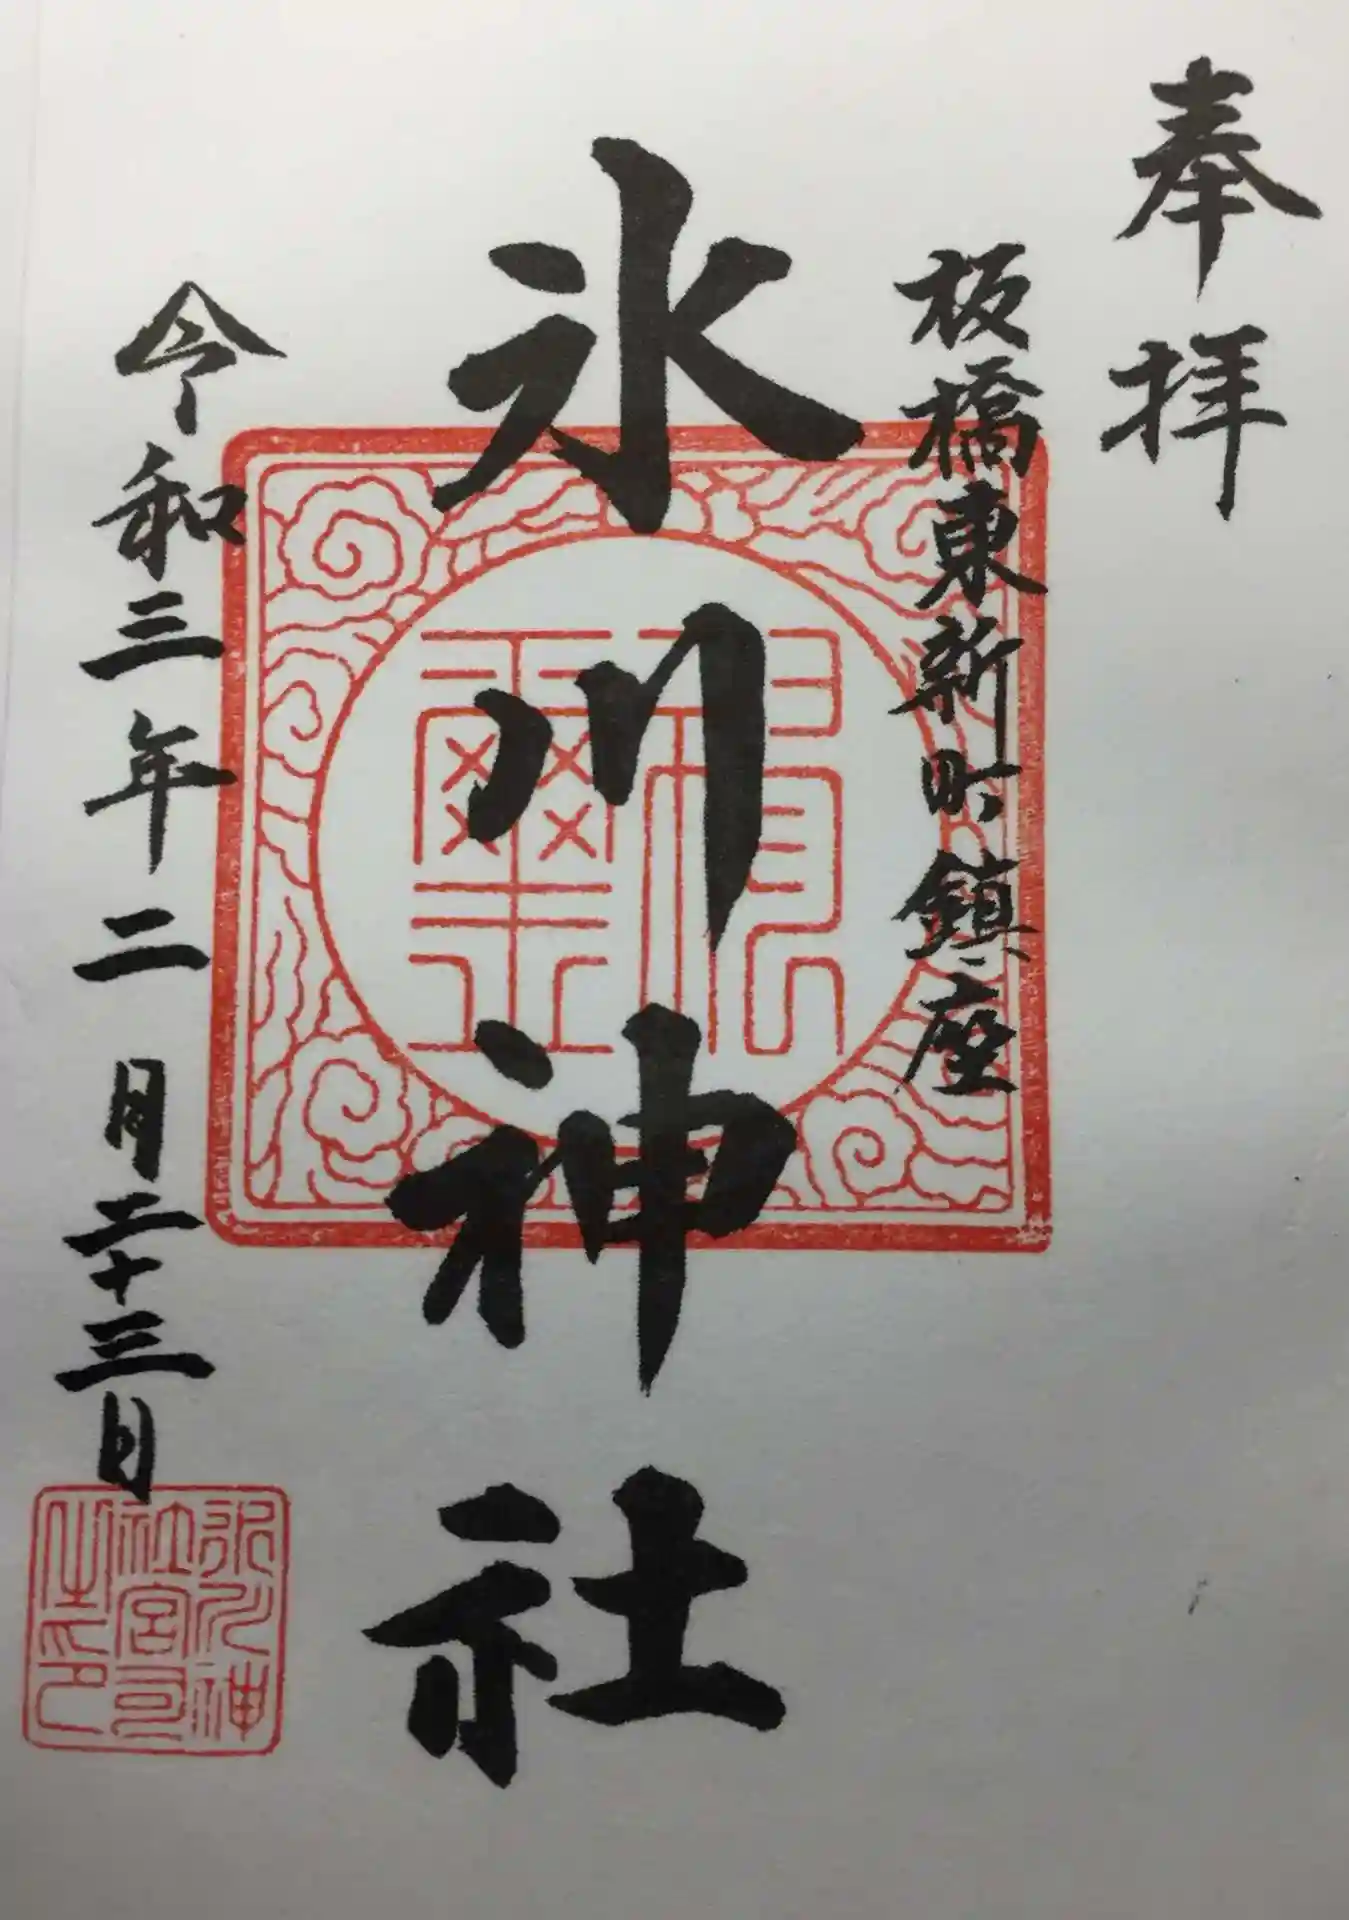 奉拝
板橋東新町鎮座
氷川神社
令和三年二月二十三日
氷川神
社宮司
之印